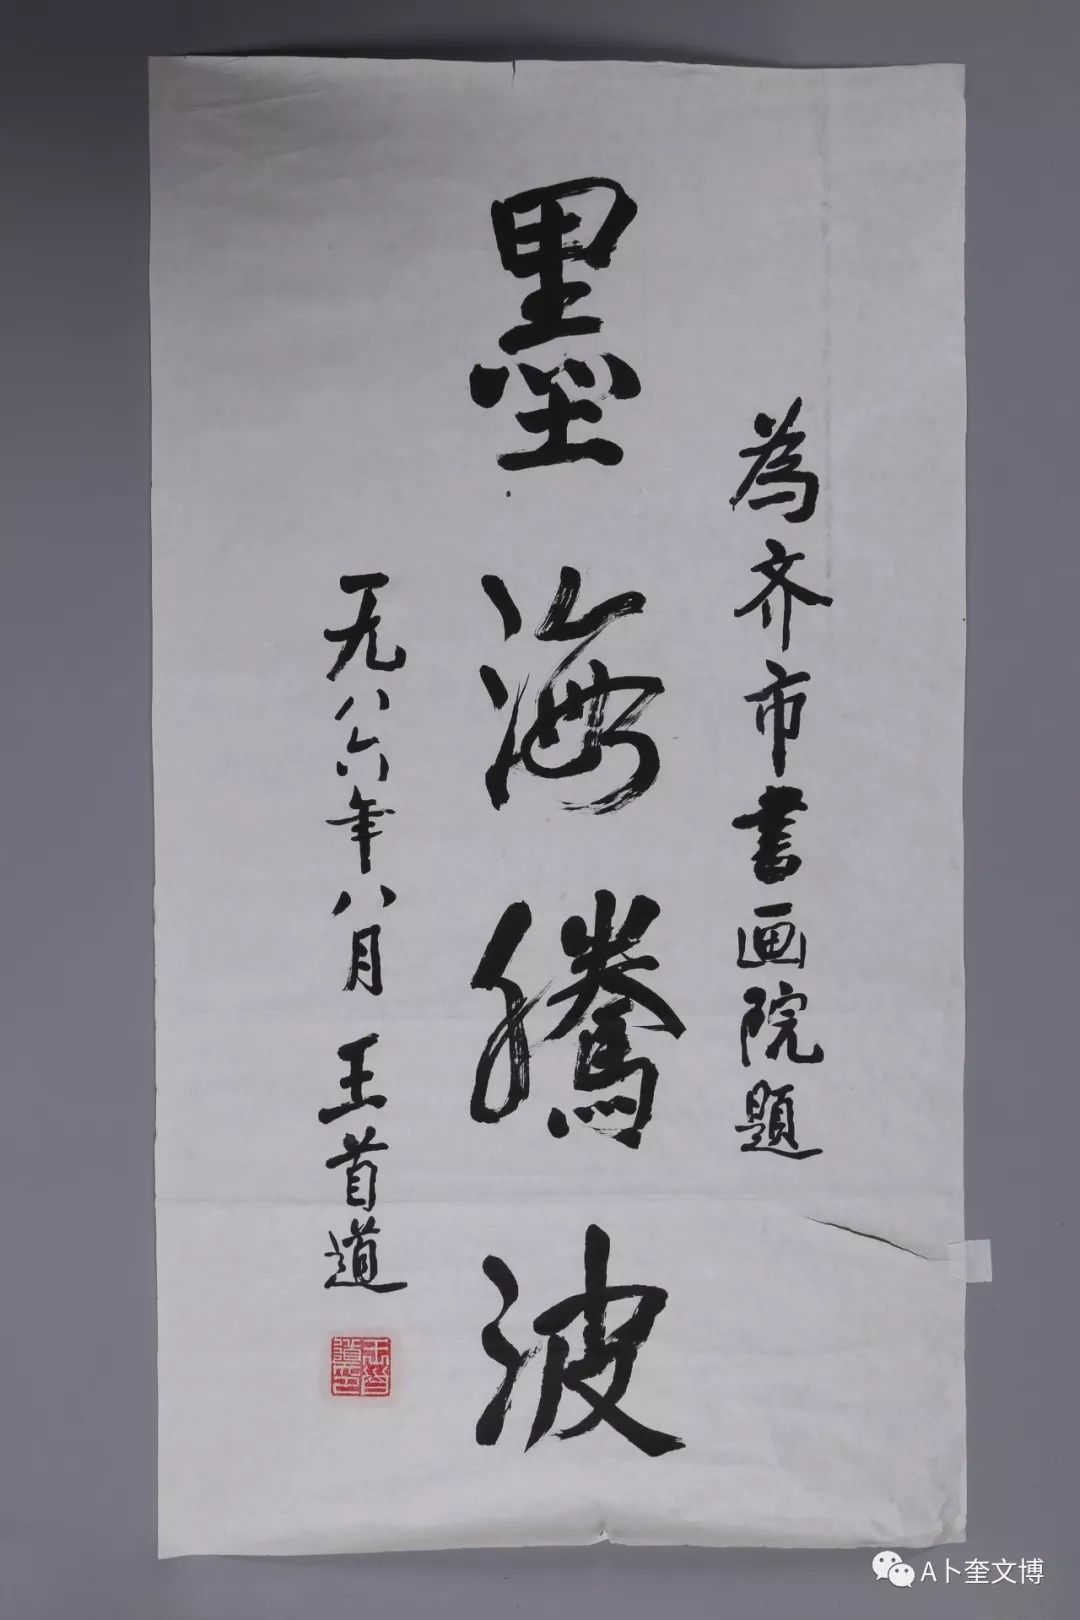 為齐市書画院題
墨海騰波
一九八六年八月 王首道
A卜奎文博